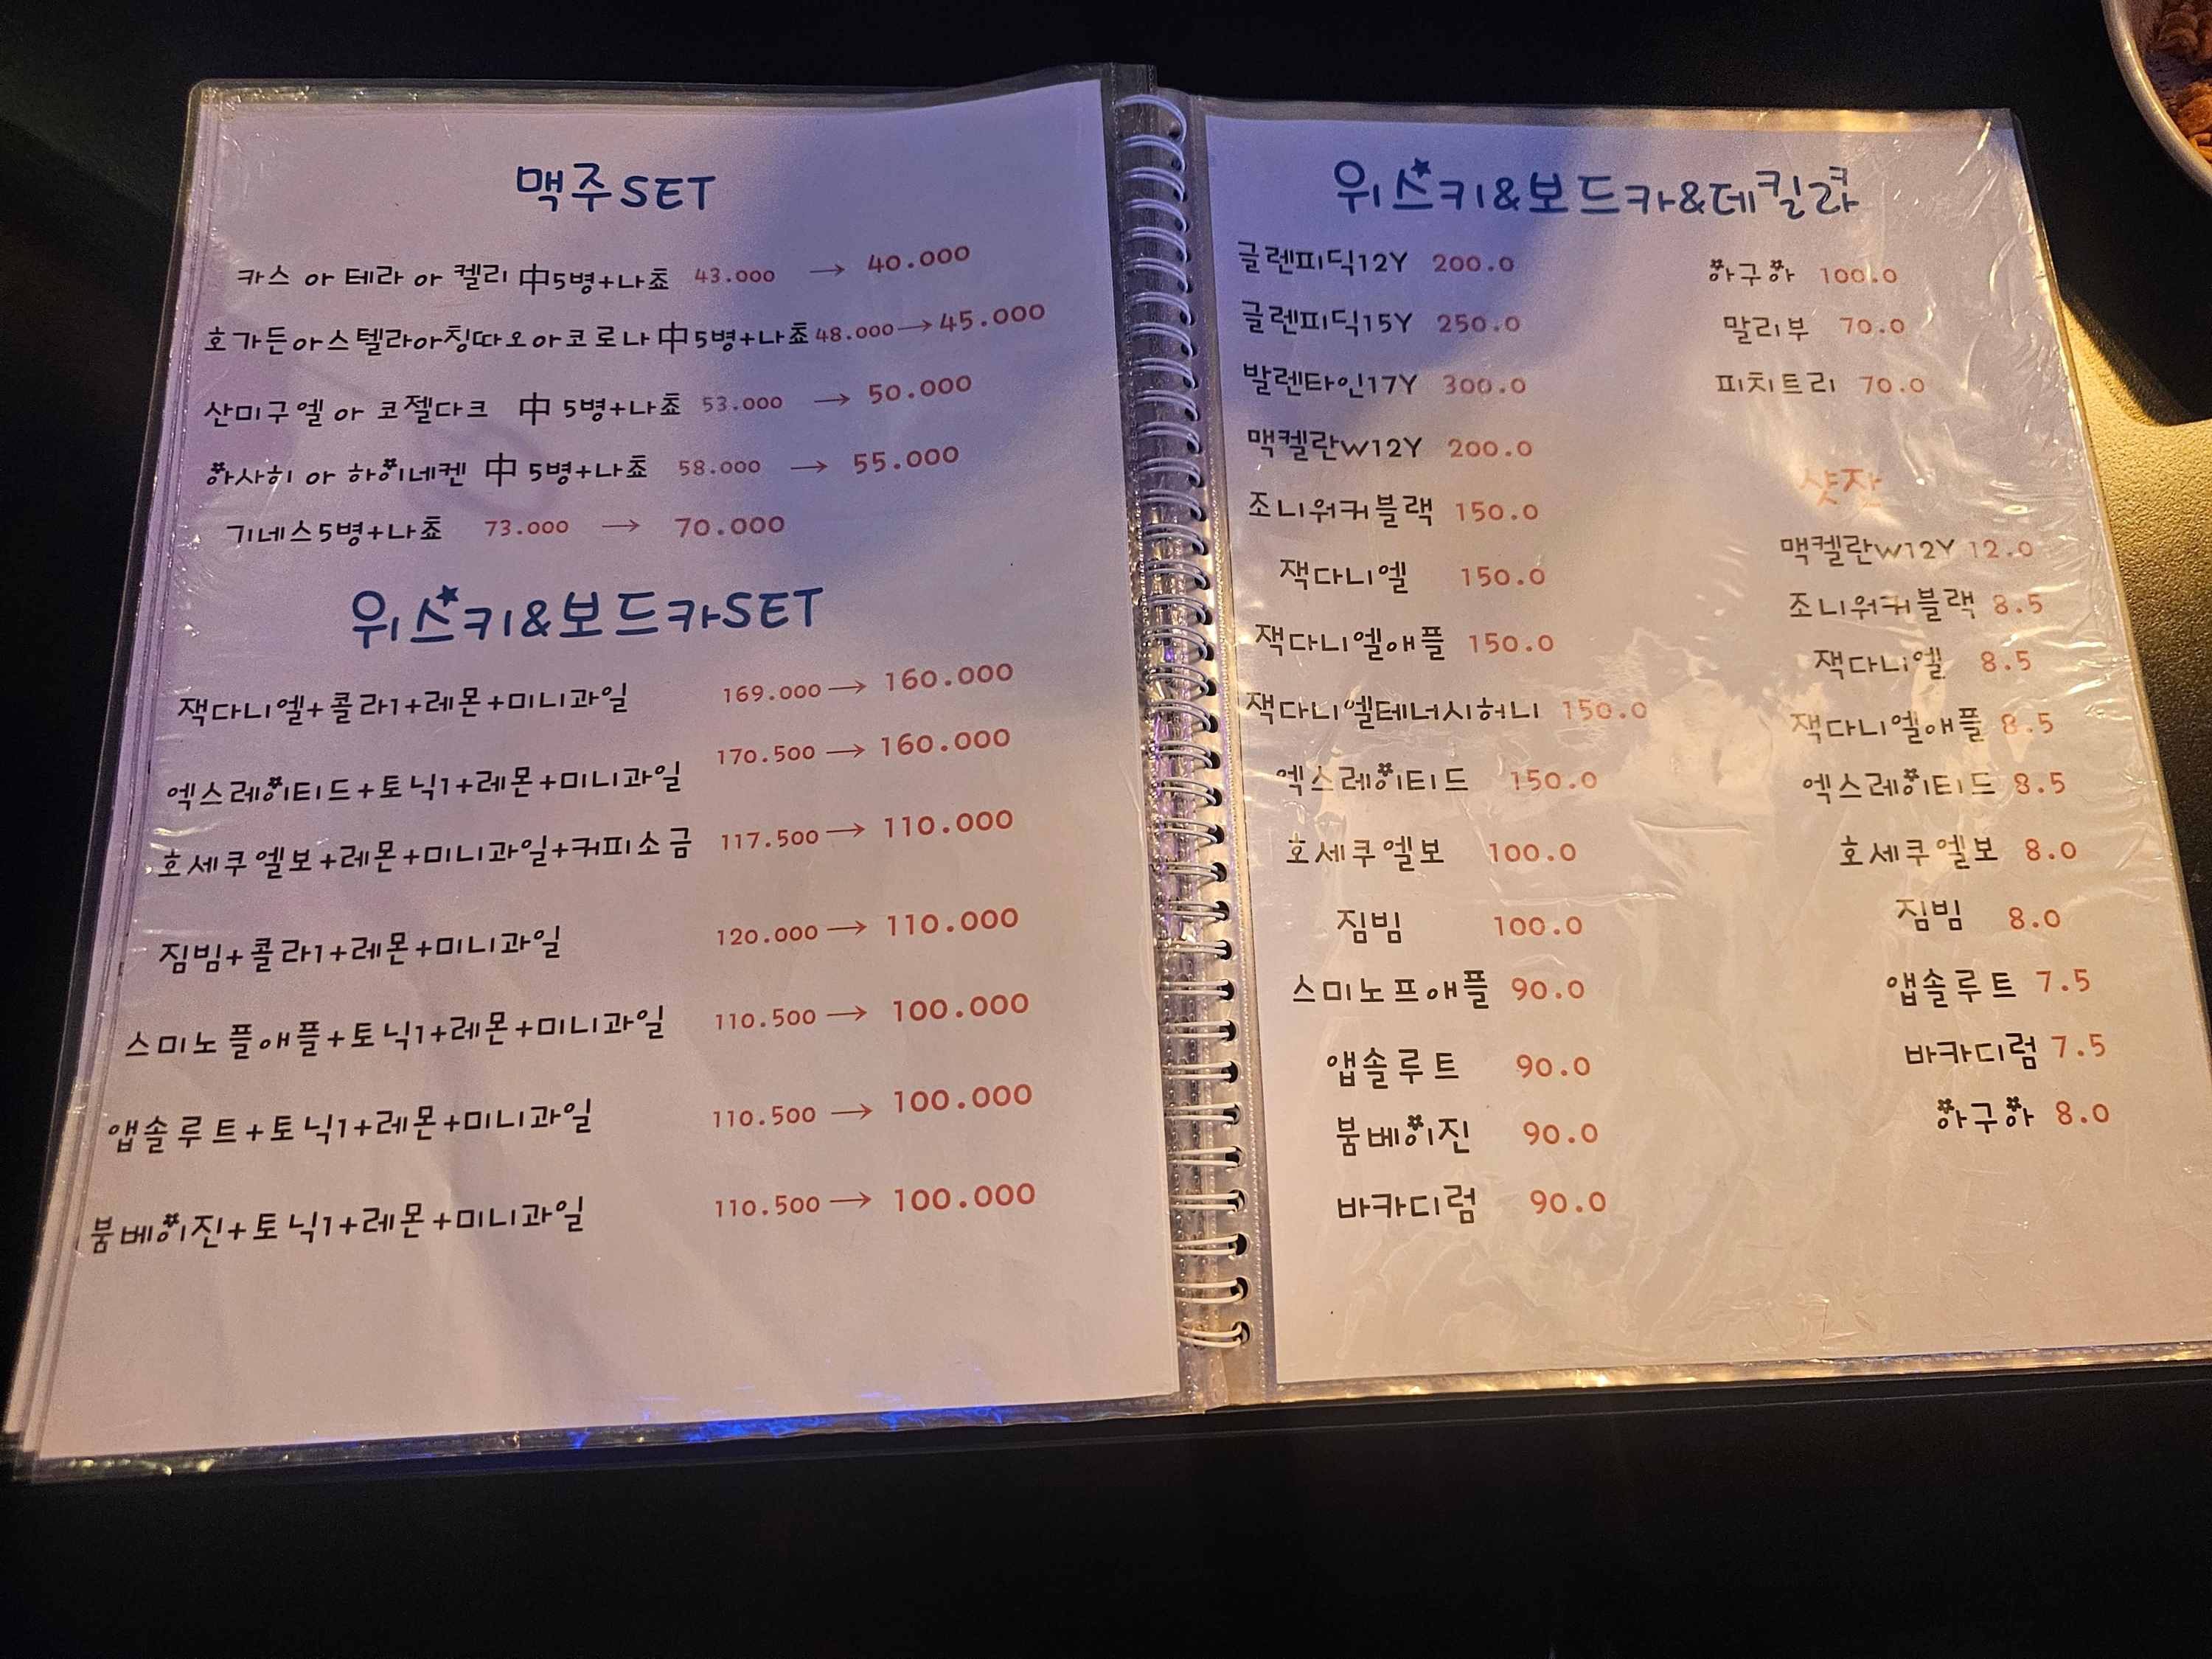 맥주SET
카스 or 테라 or 켈리 中5병+나쵸 43.000 → 40.000
호가든or스텔라or칭따오or코로나 中5병+나쵸 48.000→45.000
산미구엘 or 코젤다크 中 5병+나쵸 53.000 → 50.000
아사히 or 하이네켄 中 5병+나쵸 58.000 → 55.000
기네스5병+나쵸 73.000 → 70.000
위스키&보드카SET
잭다니엘+콜라1+레몬+미니과일 169.000 → 160.000
엑스레이티드+토닉1+레몬+미니과일 170.500 → 160.000
호세쿠엘보+레몬+미니과일+커피소금 117.500 → 110.000
짐빔+콜라1+레몬+미니과일 120.000 → 110.000
스미노플애플+토닉1+레몬+미니과일 110.500 → 100.000
앱솔루트+토닉1+레몬+미니과일 110.500 → 100.000
붐베이진+토닉1+레몬+미니과일 110.500 → 100.000
위스키&보드카&데킬라
글렌피딕12Y 200.0
글렌피딕15Y 250.0
발렌타인17Y 300.0
맥켈란W12Y 200.0
조니워커블랙 150.0
잭다니엘 150.0
잭다니엘애플 150.0
잭다니엘테너시허니 150.0
엑스레이티드 150.0
호세쿠엘보 100.0
짐빔 100.0
스미노프애플 90.0
앱솔루트 90.0
붐베이진 90.0
바카디럼 90.0
아구아 100.0
말리부 70.0
피치트리 70.0
샷잔
맥켈란W12Y 12.0
조니워커블랙 8.5
잭다니엘 8.5
잭다니엘애플 8.5
엑스레이티드 8.5
호세쿠엘보 8.0
짐빔 8.0
앱솔루트 7.5
바카디럼 7.5
아구아 8.0